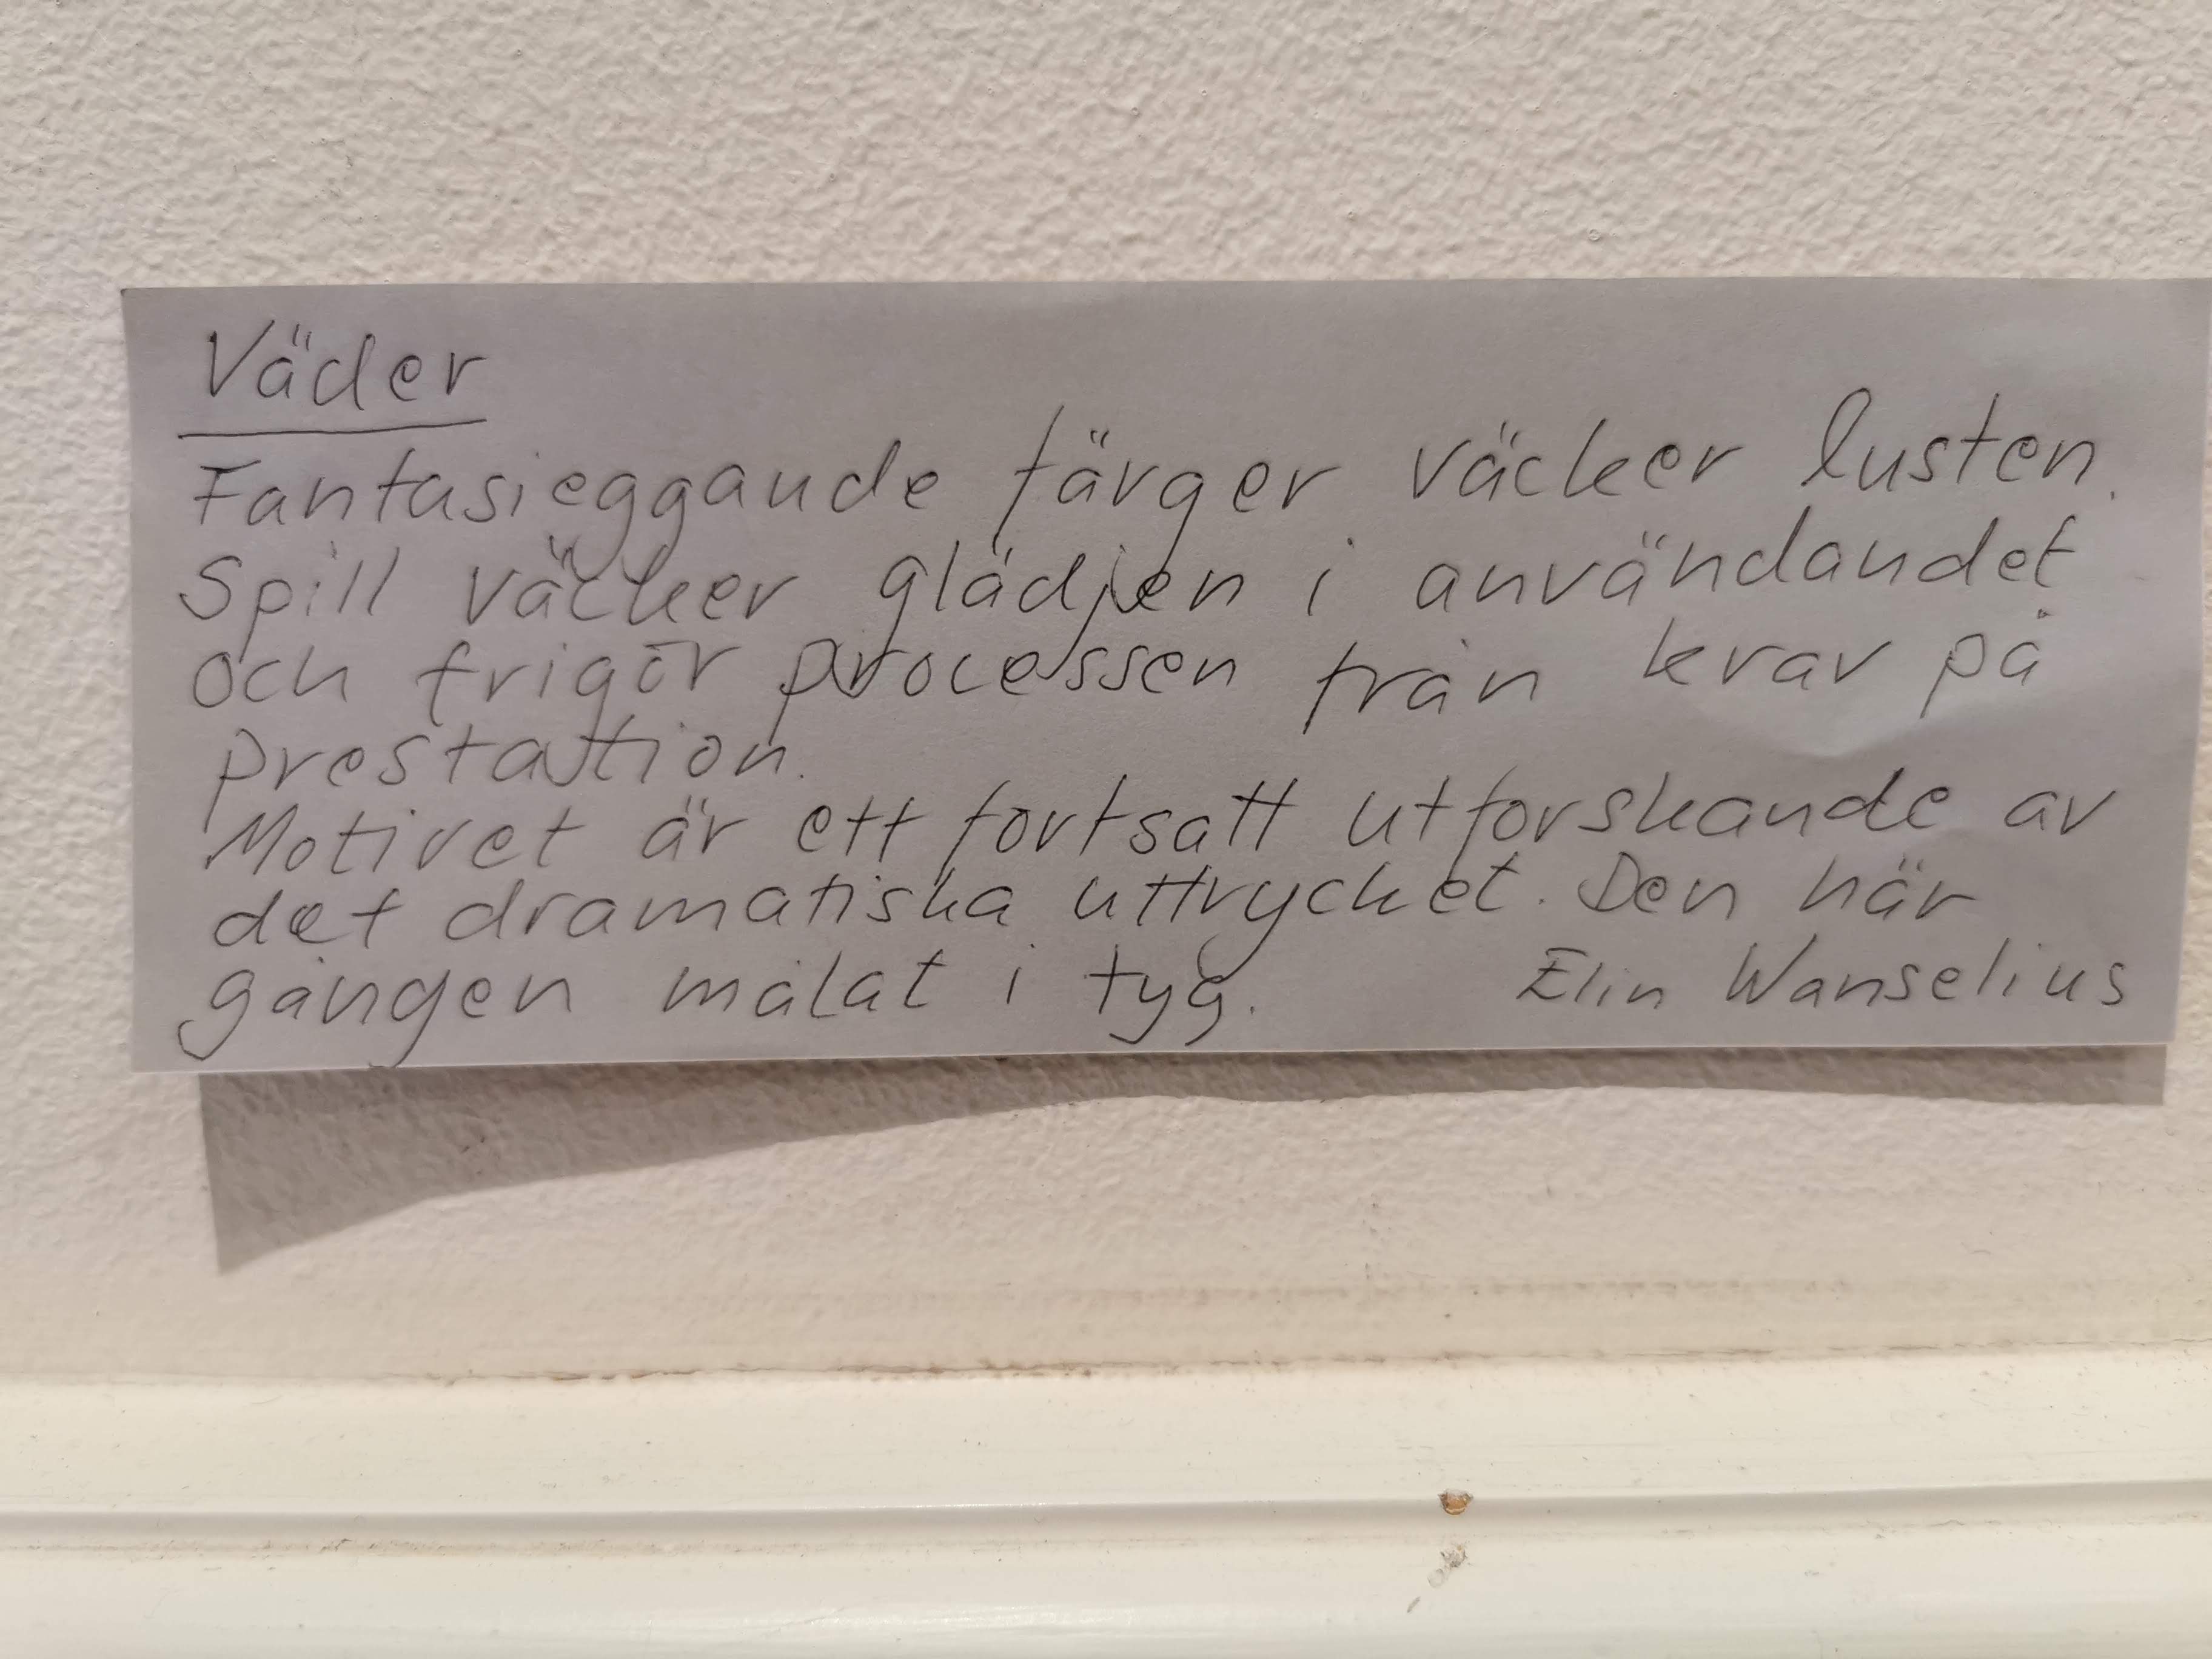 Väder
Fantasieggande färger väcker lusten.
Spill väcker glädjen i användandet
och frigör processen från krav på
prestation.
Motivet är ett fortsatt utforskande av
det dramatiska uttrycket. Den här
gången målat i tyg. Elin Wanselius